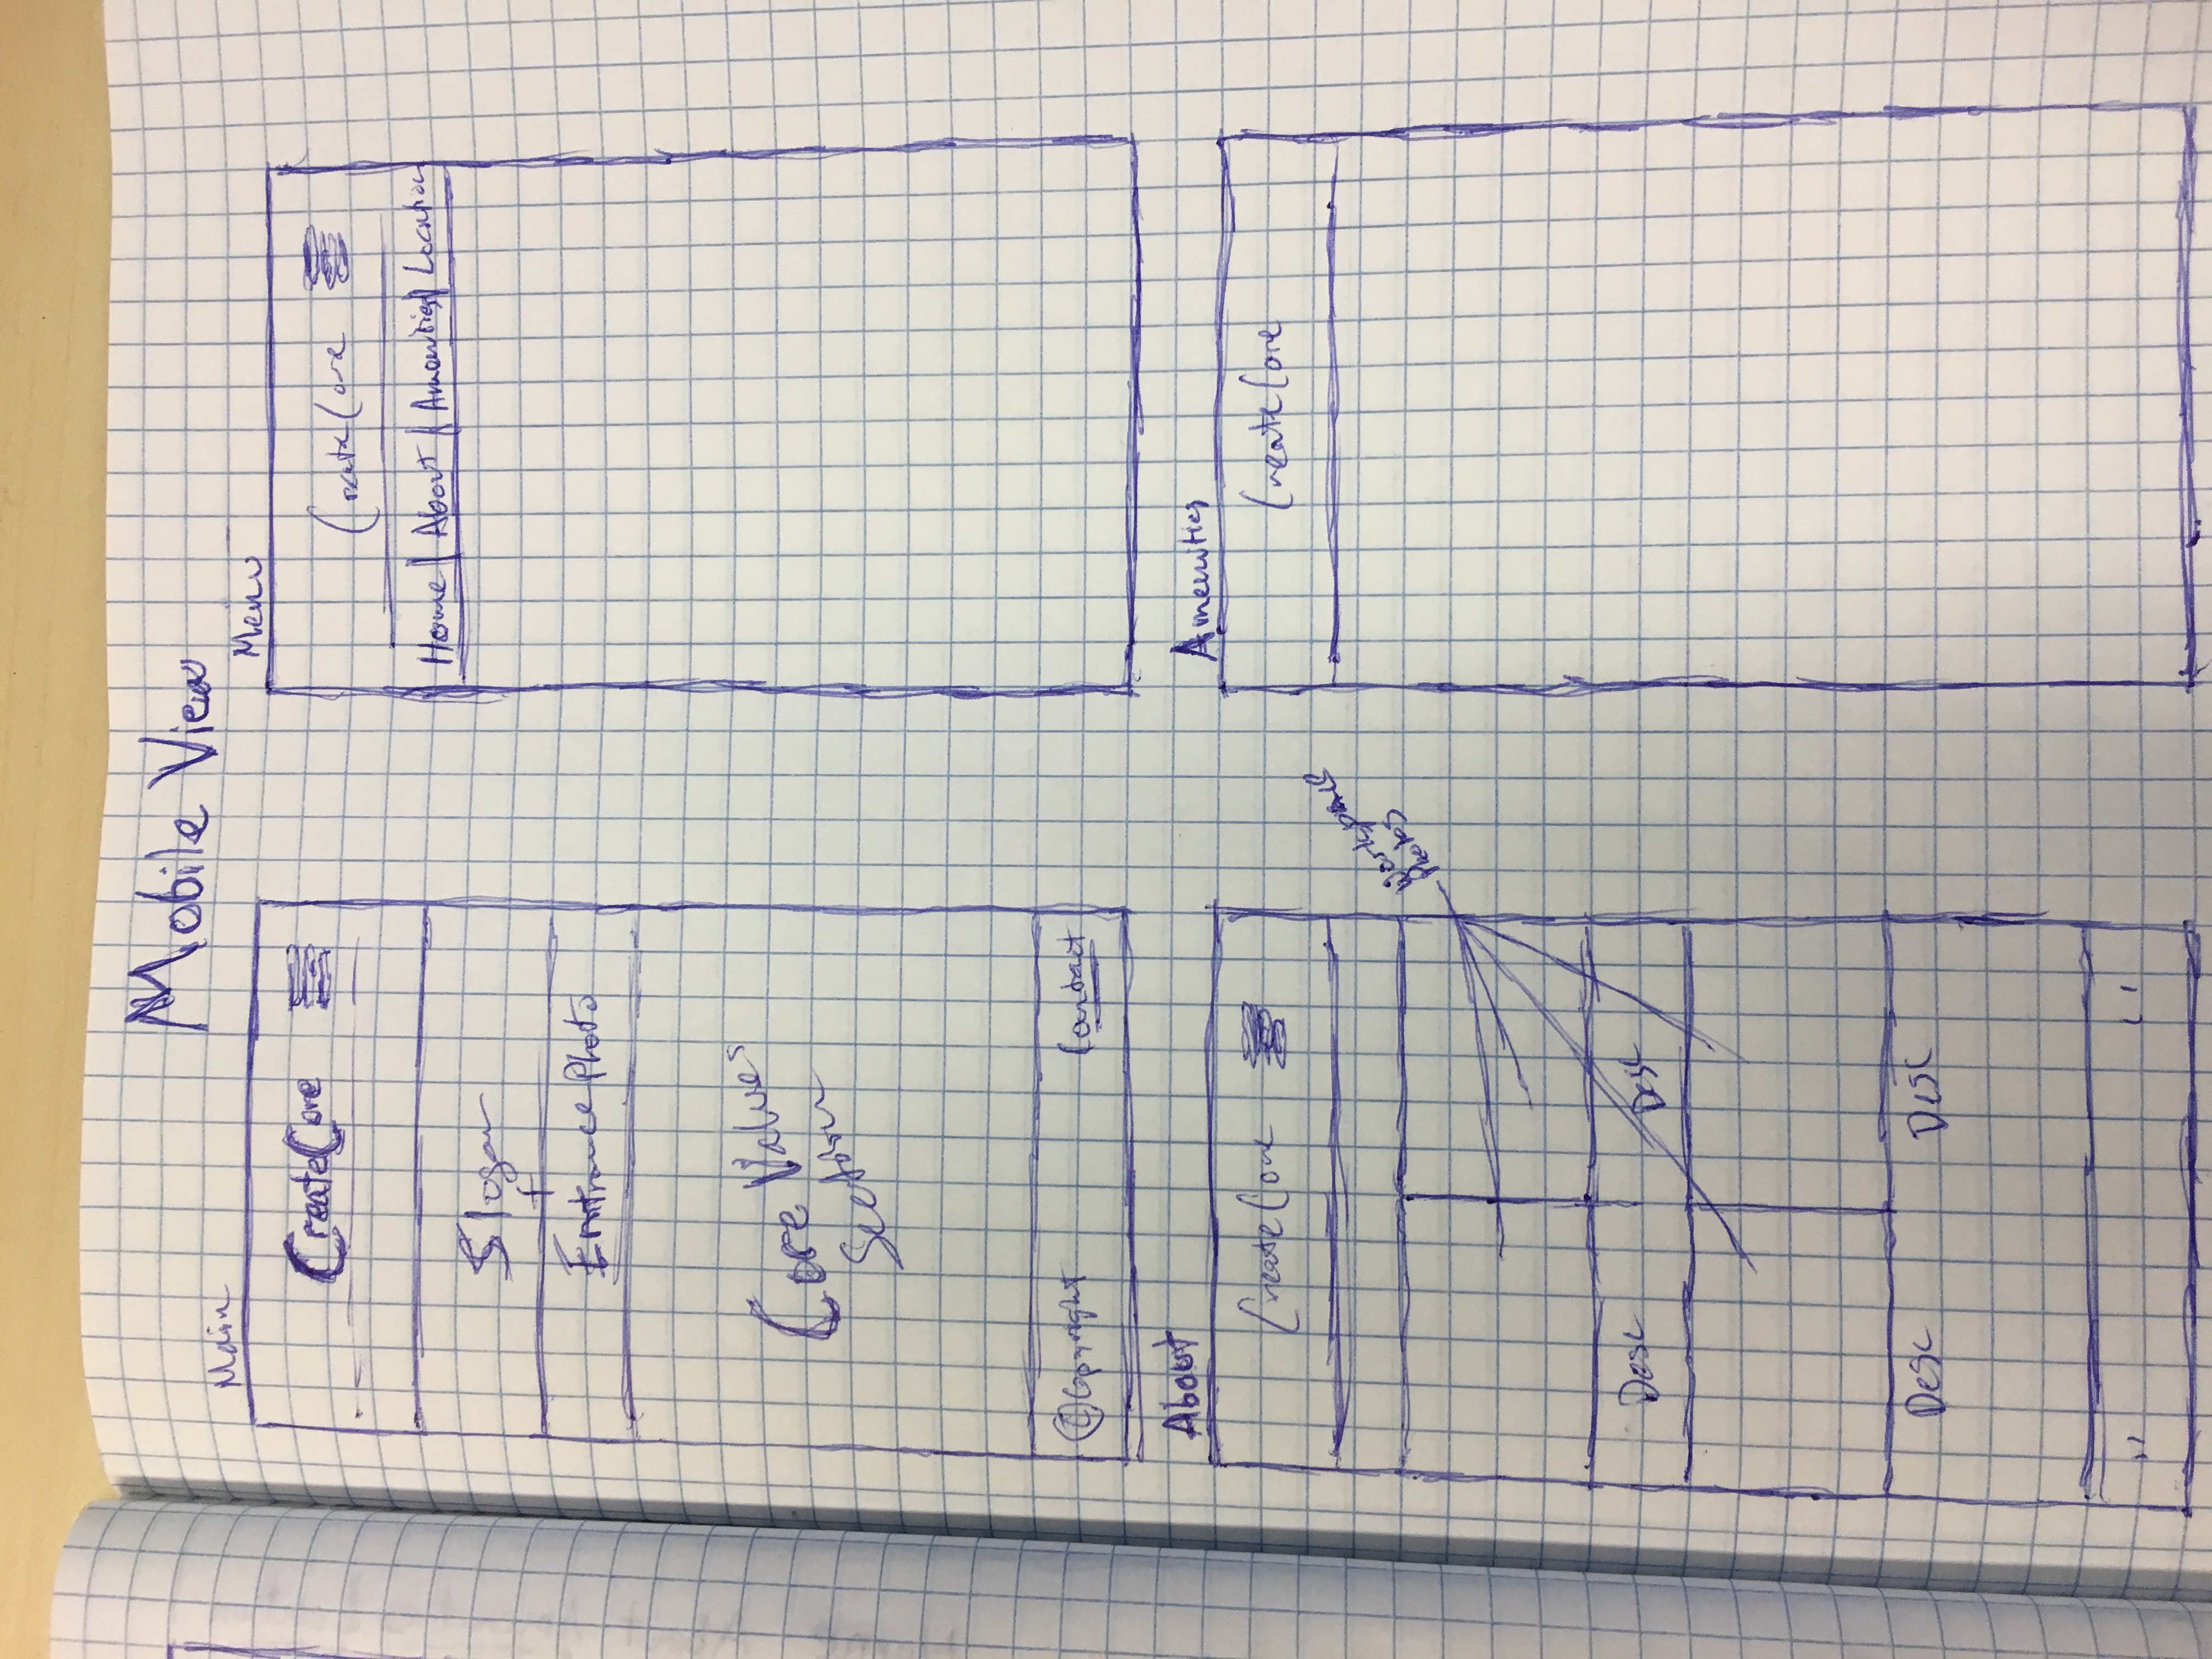 Mobile View
Main
CreateCore
Slogan
+
Entrance Photo
Core Values
Section
© Copyright
Contact
Menu
CreateCore
Home | About | Amenities | Location
About
CreateCore
Workspace
Photos
Desc
Desc
Desc
Desc
" "
Amenities
CreateCore